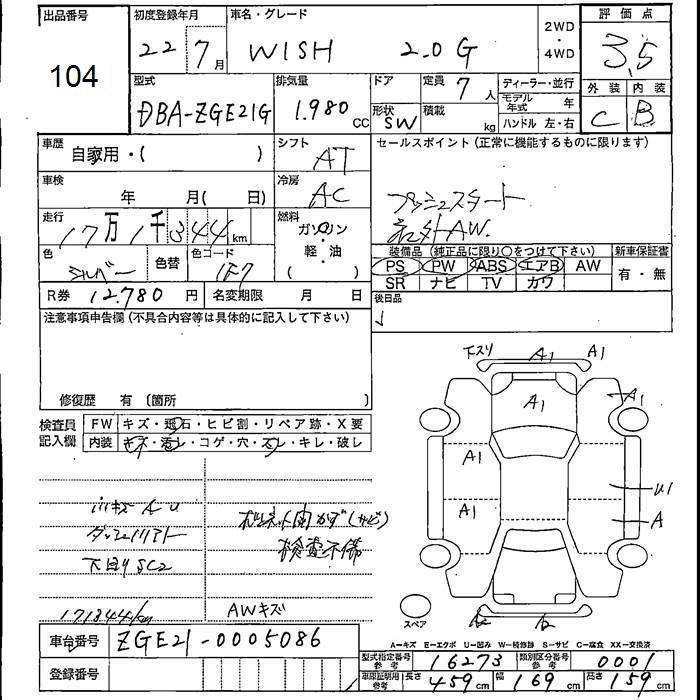 出品番号
104
初度登録年月
22 年 7 月
車名・グレード
WISH 2.0 G
2WD
・
4WD
評価点
3.5
外装 内装
C B
型式
DBA-ZGE21G
排気量
1.980 CC
ドア
形状
SW
定員 7 人
積載 kg
ディーラー・並行
モデル年式 年
ハンドル 左・右
車歴
自家用・( )
シフト
AT
セールスポイント (正常に機能するものに限ります)
プッシュスタート
社外AW.
車検
年 月( 日)
冷房
AC
走行
17万1千344km
燃料
ガソリン
・
軽・油
( )
色
シルバー
色替
色コード
1F7
装備品 (純正品に限り○をつけて下さい)
新車保証書
PS PW ABS エアB AW
有・無
SR ナビ TV カワ
R券 12.780 円
名変期限 月 日
後日品
注意事項申告欄 (不具合内容等は具体的に記入して下さい)
修復歴 有 〔箇所 〕
検査員
記入欄
FW キズ・飛石・ヒビ割・リペア跡・X要
内装 キズ・汚レ・コゲ・穴・スレ・キレ・破レ
ボンネット内カド(サビ)
検査不備
下回りSC2
171344km
AWキズ
下スリ A1 A1
A1
A1
A1
A1
U1
A
スペア
車台番号 ZGE21-0005086
登録番号
A-キズ E-エクボ U-凹み W-補修跡 S-サビ C-腐食 XX-交換済
型式指定番号 参考 16273
類別区分番号 参考 0001
車検証明用 参考
長さ 459cm 幅 169cm 高さ 159cm